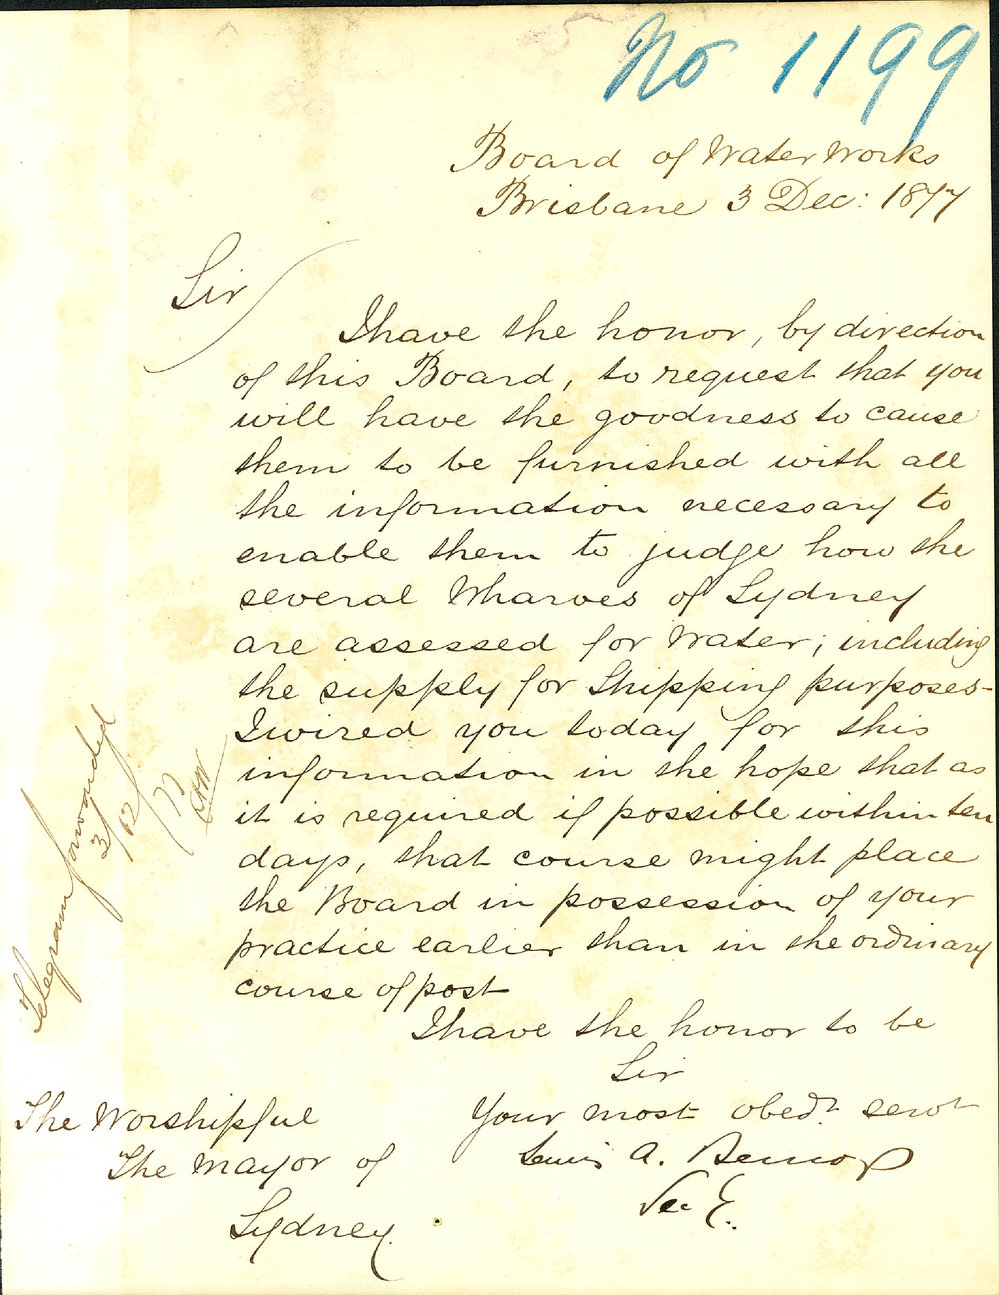 No 1199
Board of Water Works
Brisbane 3 Dec: 1877
Sir
I have the honor, by direction
of this Board, to request that you
will have the goodness to cause
them to be furnished with all
the information necessary to
enable them to judge how the
several Wharves of Sydney
are assessed for Water; including
the supply for Shipping purposes-
I wired you today for this
information in the hope that as
it is required if possible within ten
days, that course might place
the Board in possession of your
practice earlier than in the ordinary
course of post
I have the honor to be
Sir
Your most obedt. servt
Lewis A.
The Worshipful
The Mayor of
Sydney.
Telegram forwarded
3/12/77